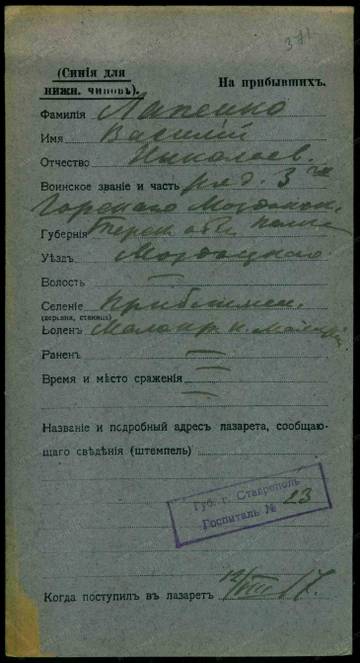 371
(Синія для
нижн. чиновъ).
На прибывшихъ.
Фамилія Лапенко
Имя Василій
Отчество Николаев.
Воинское званіе и часть ряд. 3
Горскаго
Губернія Терск. обл. полка
Уѣздъ
Волость —
Селеніе
(деревня, станица)
Боленъ
Раненъ —
Время и мѣсто сраженія —
Названіе и подробный адресъ лазарета, сообщаю-
щаго свѣдѣнія (штемпель)
Губ. г. Ставрополь
Госпиталь № 23
Когда поступилъ въ лазаретъ 12/VIII 17.